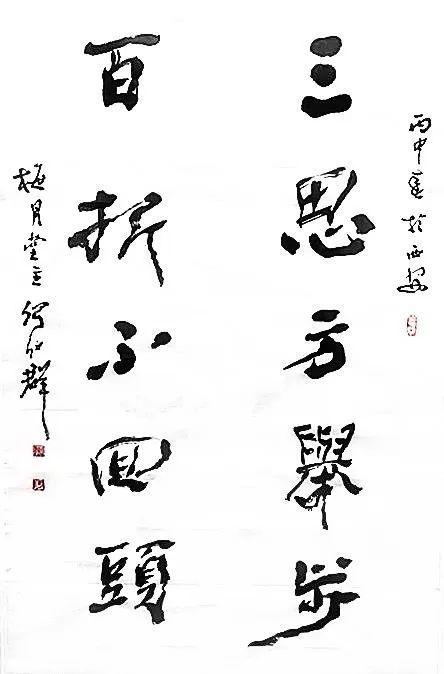 丙申春於西安
三思方舉步
百折不回頭
梅月堂主 群